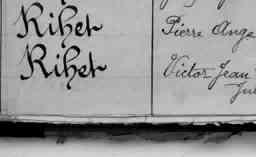 Rihet Pierre Ange
Rihet Victor Jean